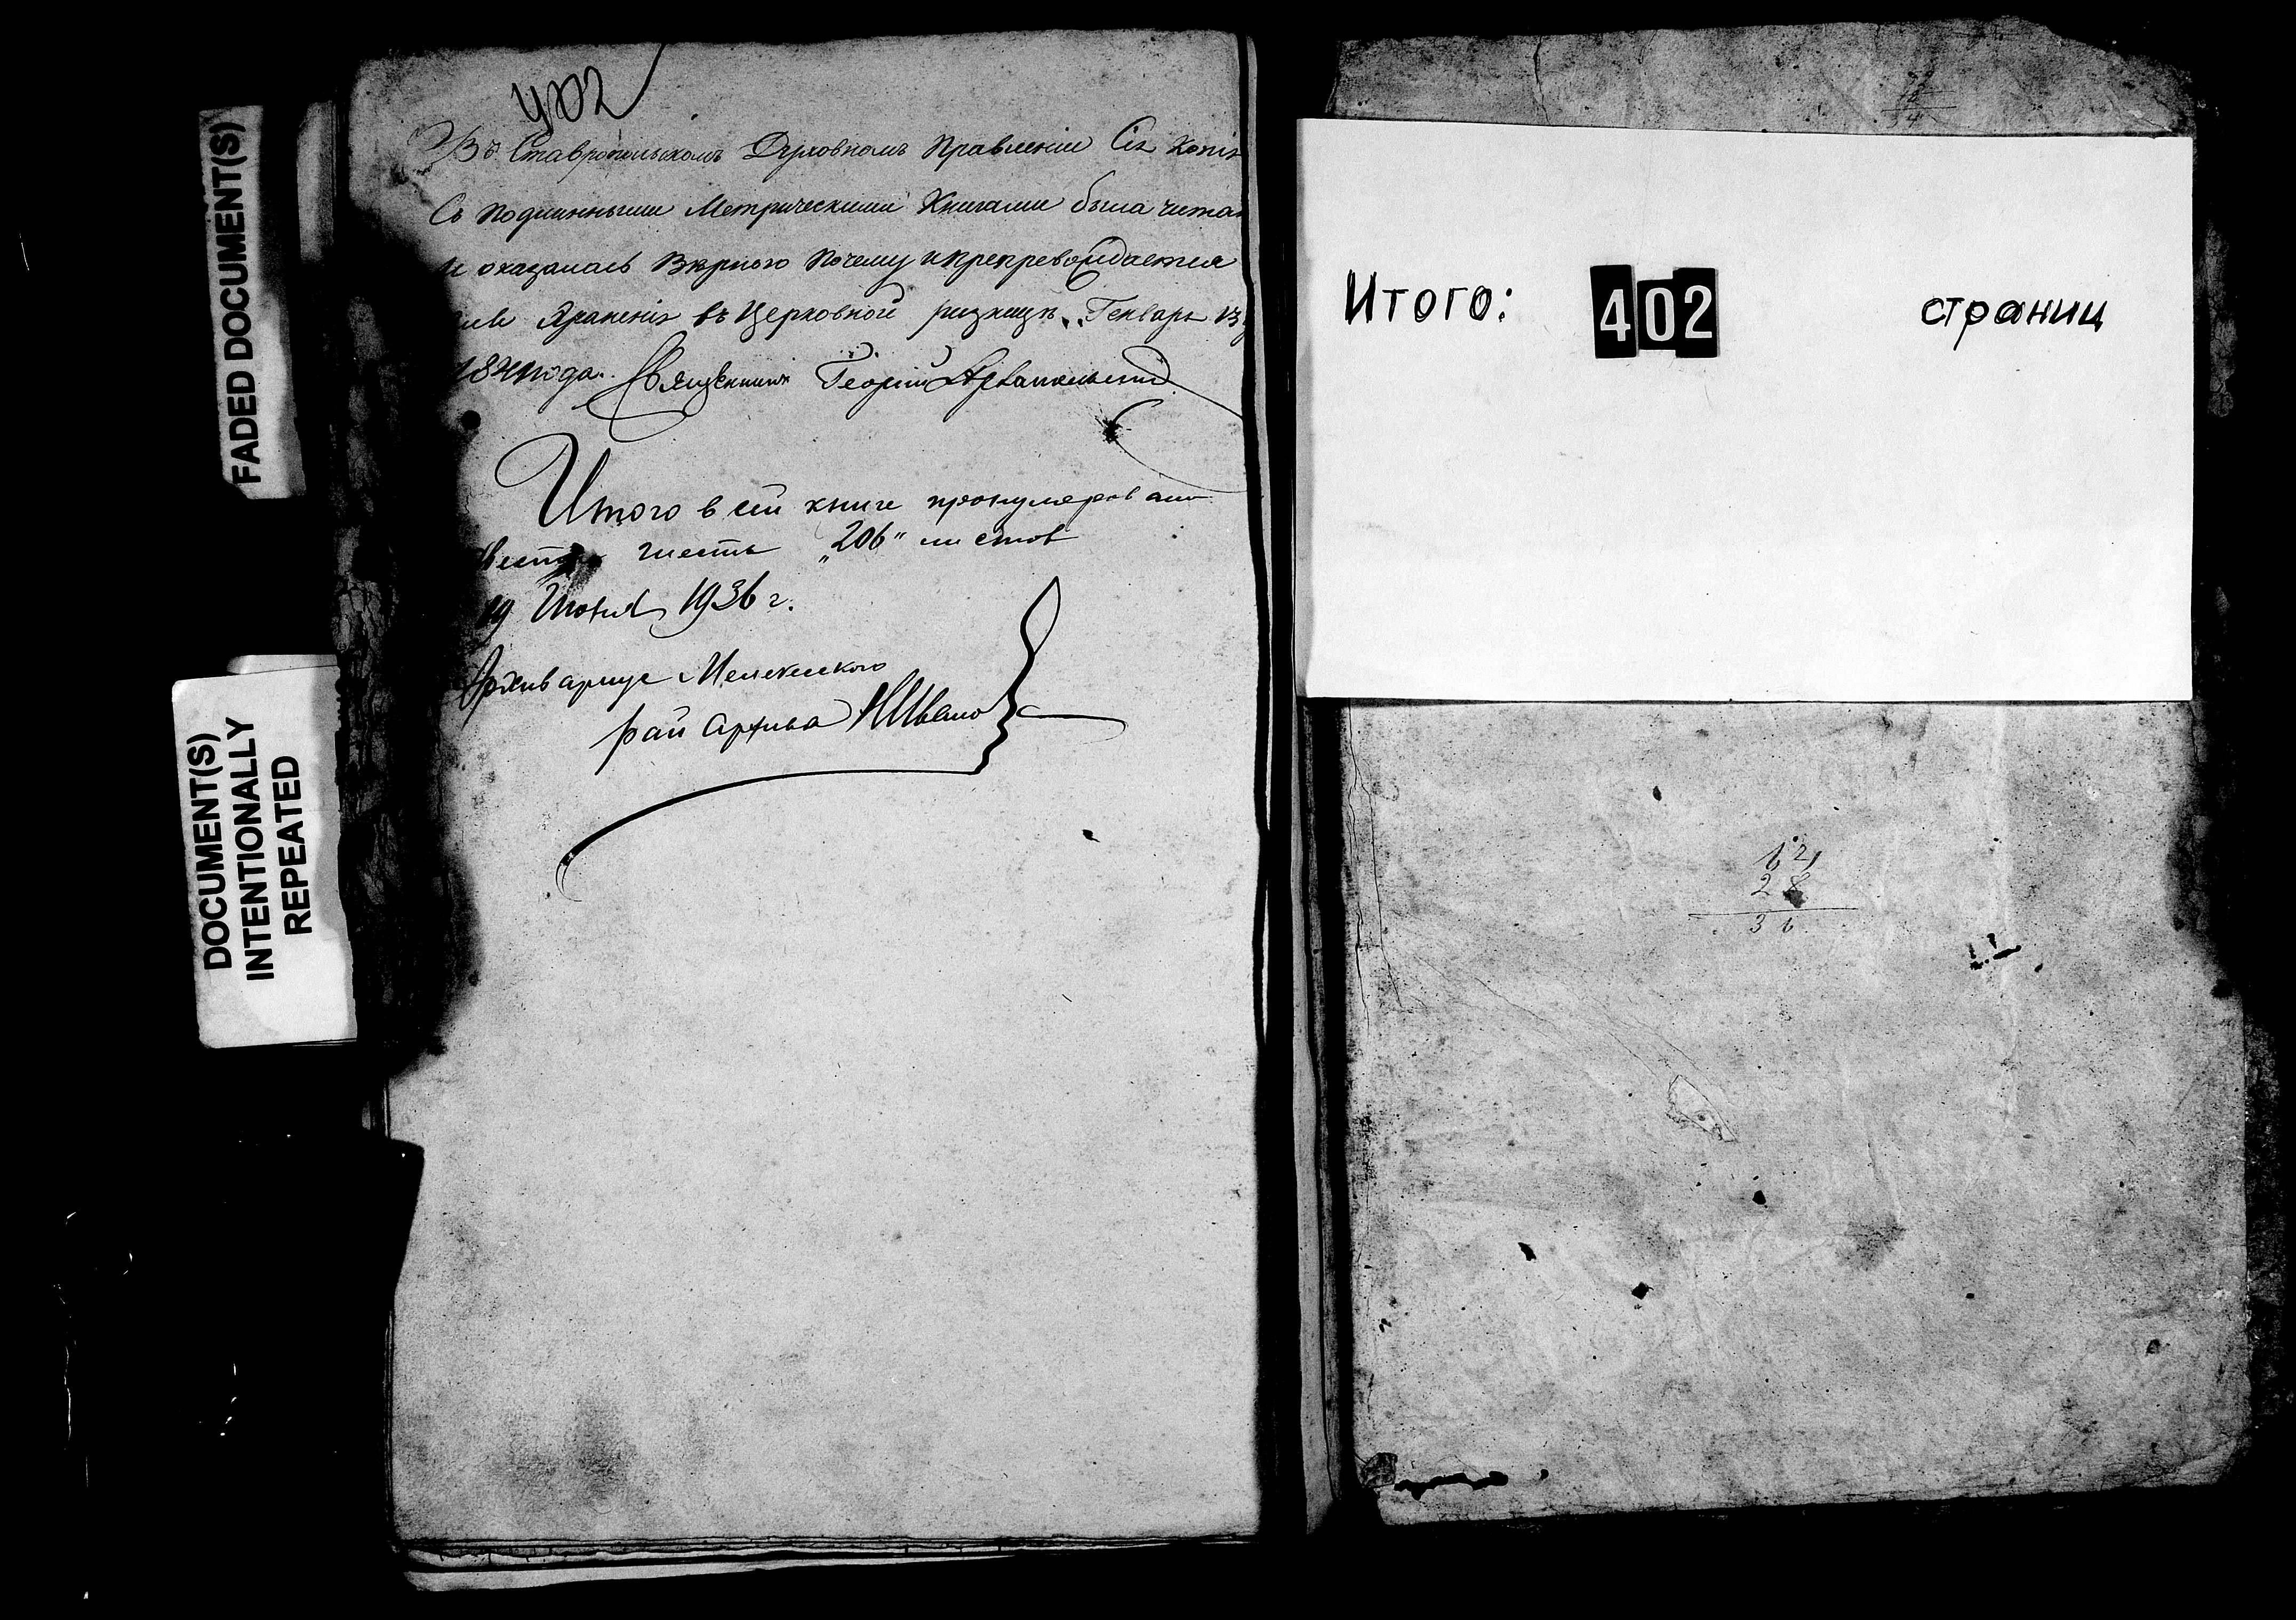 FADED DOCUMENT(S)
DOCUMENT(S)
INTENTIONALLY
REPEATED
402
Въ Ставропольскомъ Духовномъ Правленіи Сія Копія
Съ подлинными Метрическими Книгами была читан
и оказалась Вѣрною Почему и препревождается
для Храненія въ Церковной ризницѣ. Генваря 13
года. Священникъ Георгій
Итого в сей книге пронумеровано
двести шесть „206" листов
19 Июня 1936 г.
Архивариус Мелекесского
рай архива НИвано
Итого: 402 страниц
62
28
36